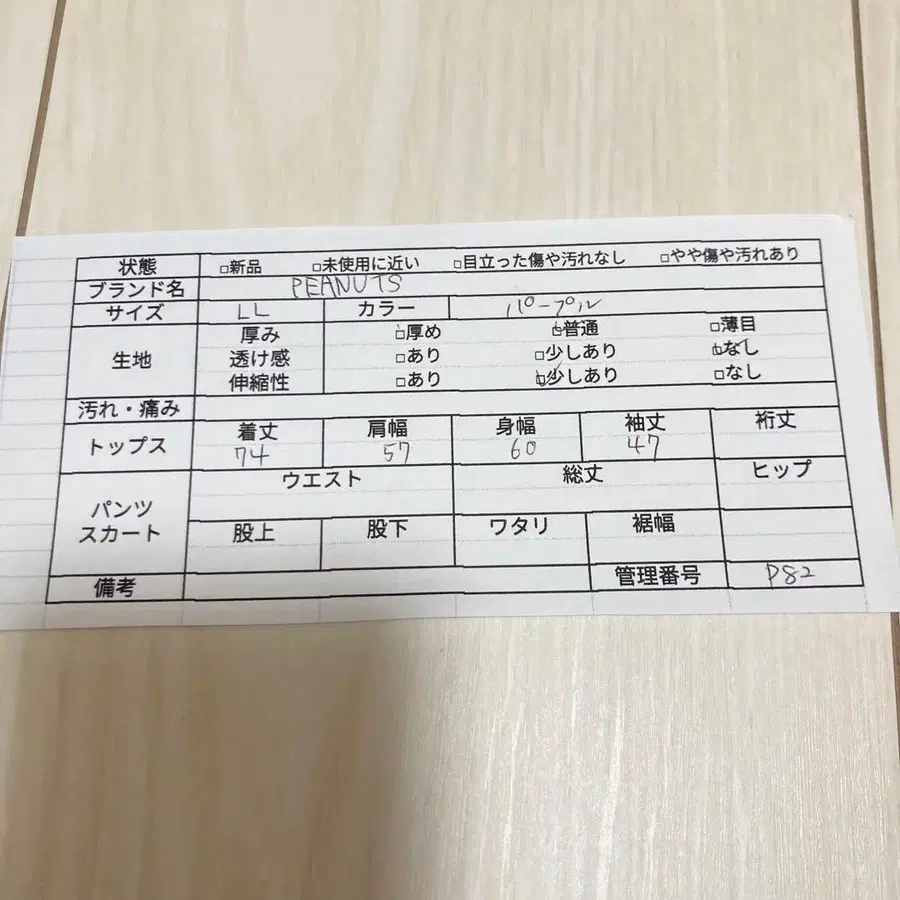 状態 □新品 □未使用に近い □目立った傷や汚れなし □やや傷や汚れあり
ブランド名 PEANUTS
サイズ LL カラー パープル
生地 厚み □厚め □普通 □薄目
透け感 □あり □少しあり □なし
伸縮性 □あり □少しあり □なし
汚れ・痛み
トップス 着丈 肩幅 身幅 袖丈 裄丈
74 57 60 47
パンツ スカート ウエスト 総丈 ヒップ
股上 股下 ワタリ 裾幅
備考 管理番号 P82